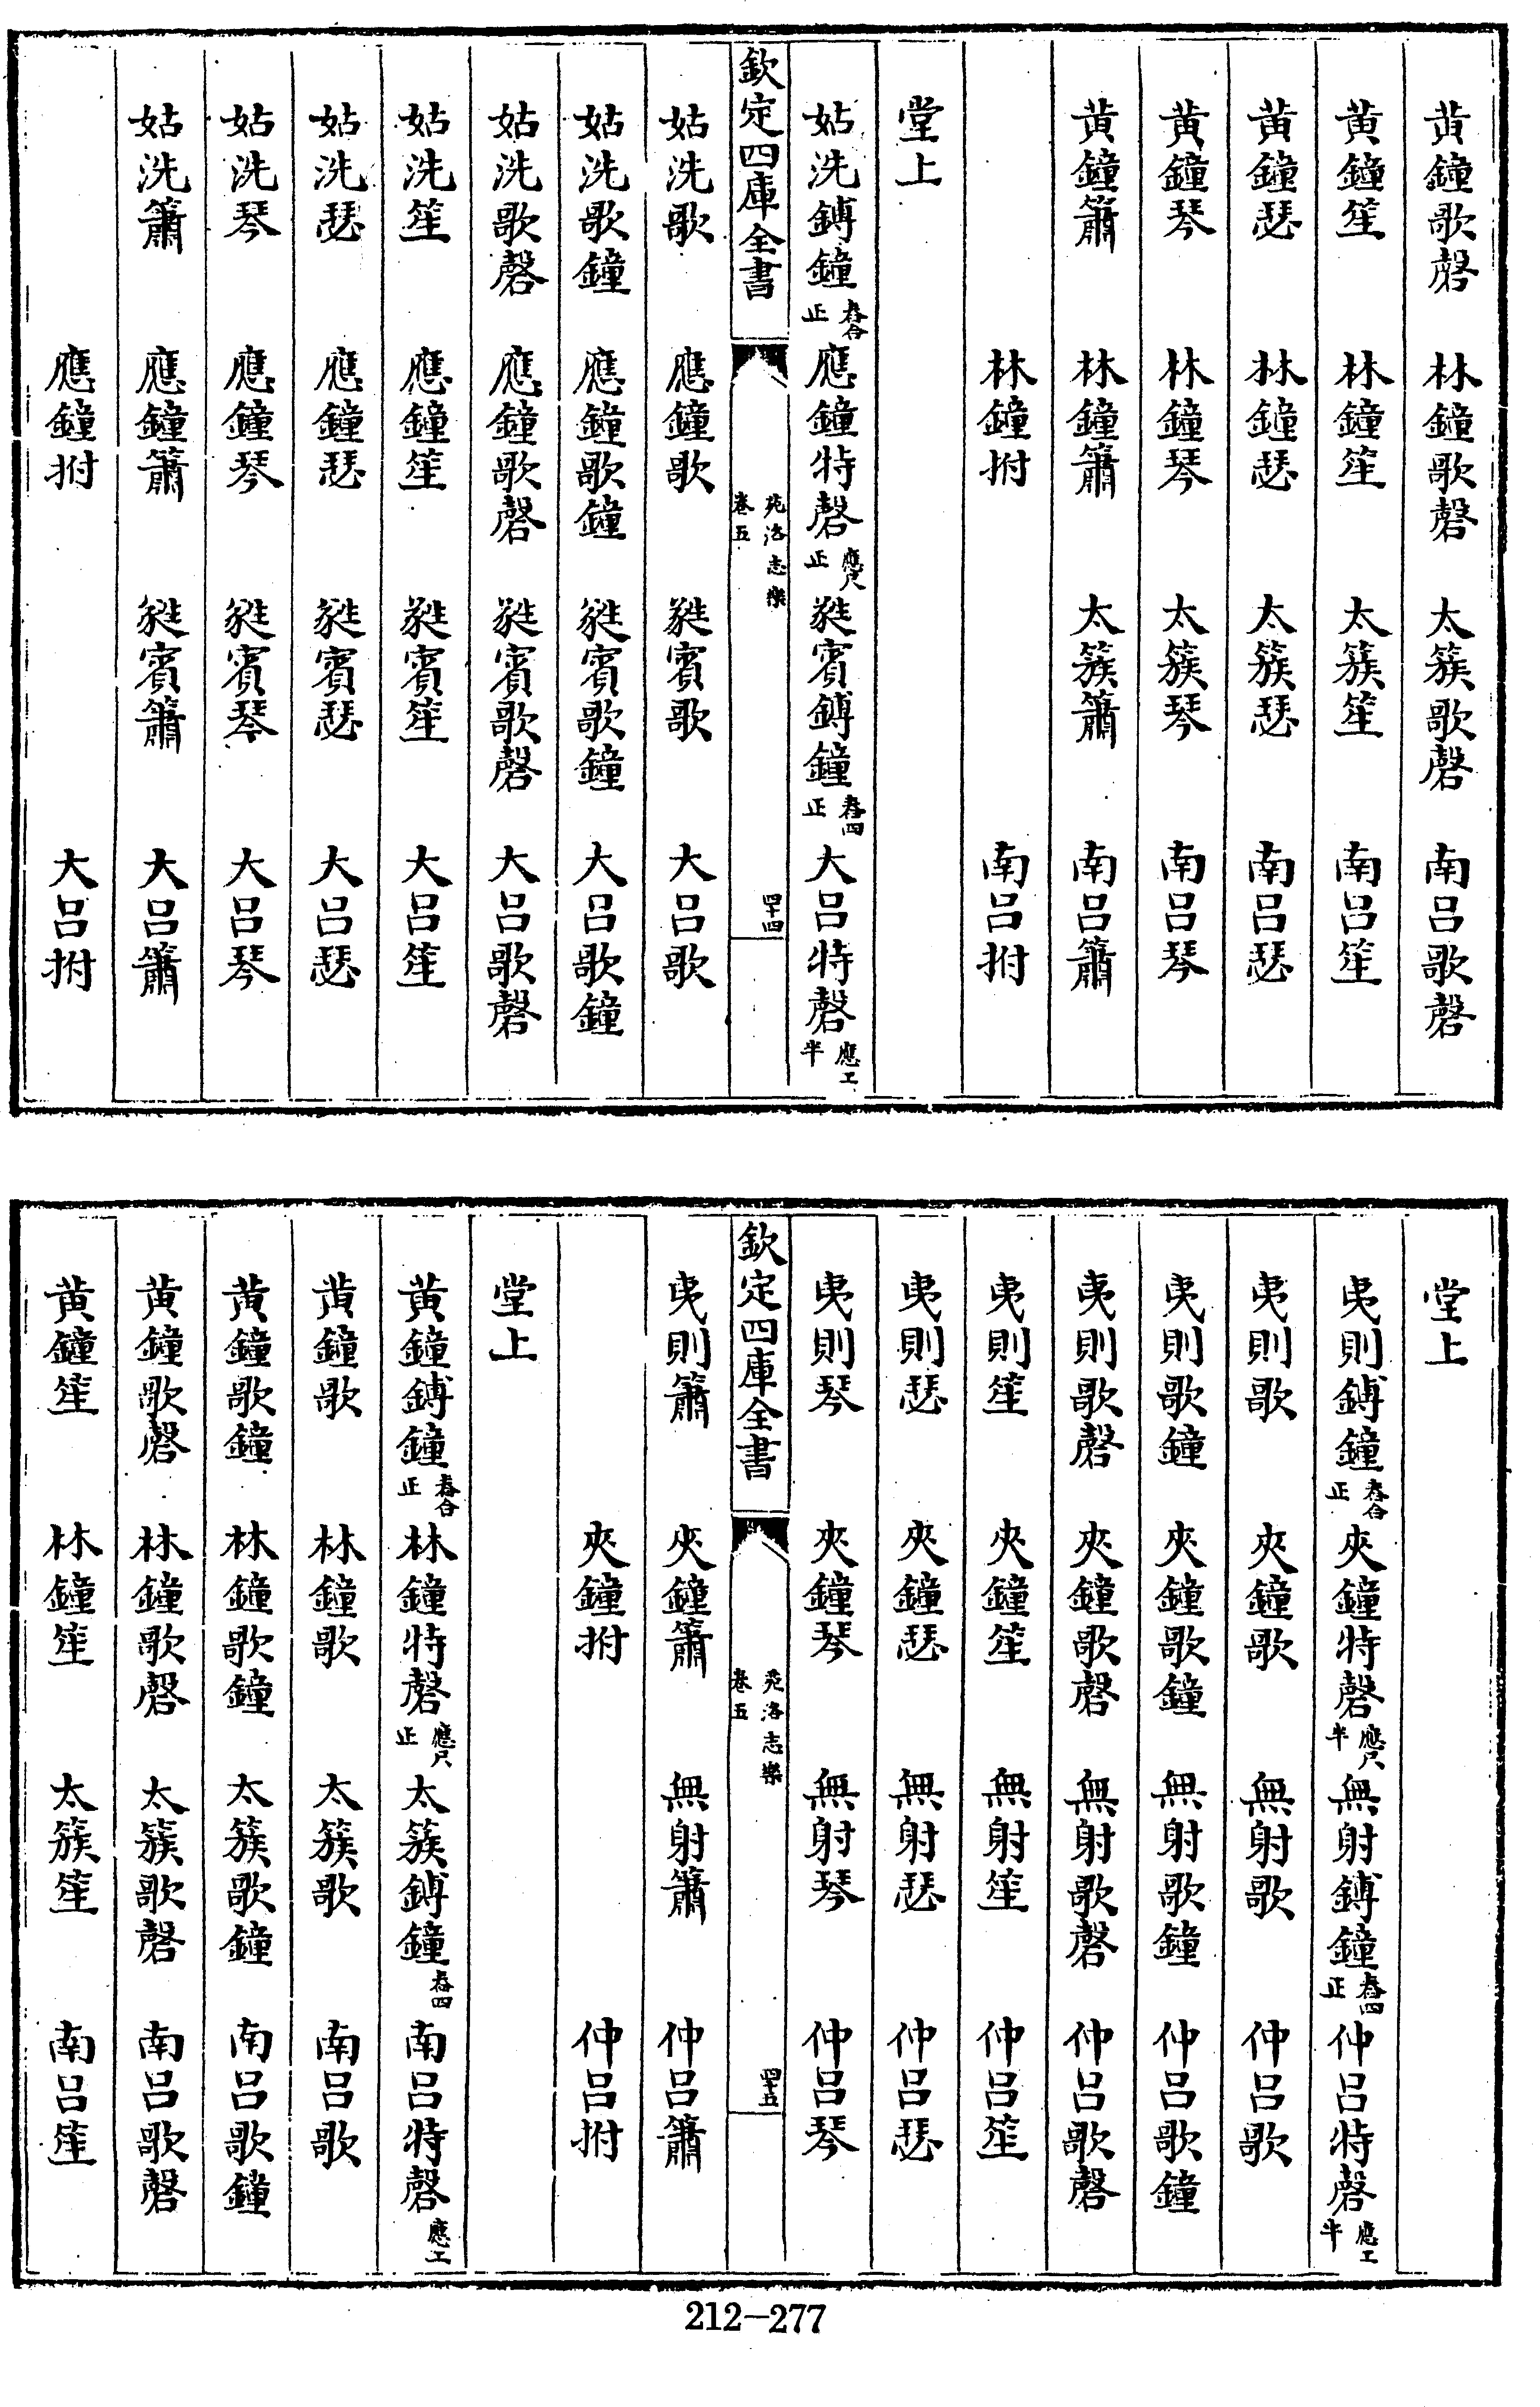 黄鐘歌磬 林鐘歌磬 太簇歌磬 南呂歌磬
黄鐘笙 林鐘笙 太簇笙 南呂笙
黄鐘瑟 林鐘瑟 太簇瑟 南呂瑟
黄鐘琴 林鐘琴 太簇琴 南呂琴
黄鐘簫 林鐘簫 太簇簫 南呂簫
林鐘拊 南呂拊
堂上
姑洗鎛鐘 舂合正 應鐘特磬 應尺正 蕤賓鎛鐘 舂四正 大呂特磬 應工半
欽定四庫全書 苑洛志樂 卷五 四十四
姑洗歌 應鐘歌 蕤賓歌 大呂歌
姑洗歌鐘 應鐘歌鐘 蕤賓歌鐘 大呂歌鐘
姑洗歌磬 應鐘歌磬 蕤賓歌磬 大呂歌磬
姑洗笙 應鐘笙 蕤賓笙 大呂笙
姑洗瑟 應鐘瑟 蕤賓瑟 大呂瑟
姑洗琴 應鐘琴 蕤賓琴 大呂琴
姑洗簫 應鐘簫 蕤賓簫 大呂簫
應鐘拊 大呂拊
堂上
夷則鎛鐘 舂合正 夾鐘特磬 應尺半 無射鎛鐘 舂四正 仲呂特磬 應工半
夷則歌 夾鐘歌 無射歌 仲呂歌
夷則歌鐘 夾鐘歌鐘 無射歌鐘 仲呂歌鐘
夷則歌磬 夾鐘歌磬 無射歌磬 仲呂歌磬
夷則笙 夾鐘笙 無射笙 仲呂笙
夷則瑟 夾鐘瑟 無射瑟 仲呂瑟
夷則琴 夾鐘琴 無射琴 仲呂琴
欽定四庫全書 苑洛志樂 卷五 四十五
夷則簫 夾鐘簫 無射簫 仲呂簫
夾鐘拊 仲呂拊
堂上
黄鐘鎛鐘 舂合正 林鐘特磬 應尺正 太簇鎛鐘 舂四 南呂特磬 應工
黄鐘歌 林鐘歌 太簇歌 南呂歌
黄鐘歌鐘 林鐘歌鐘 太簇歌鐘 南呂歌鐘
黄鐘歌磬 林鐘歌磬 太簇歌磬 南呂歌磬
黄鐘笙 林鐘笙 太簇笙 南呂笙
212-277